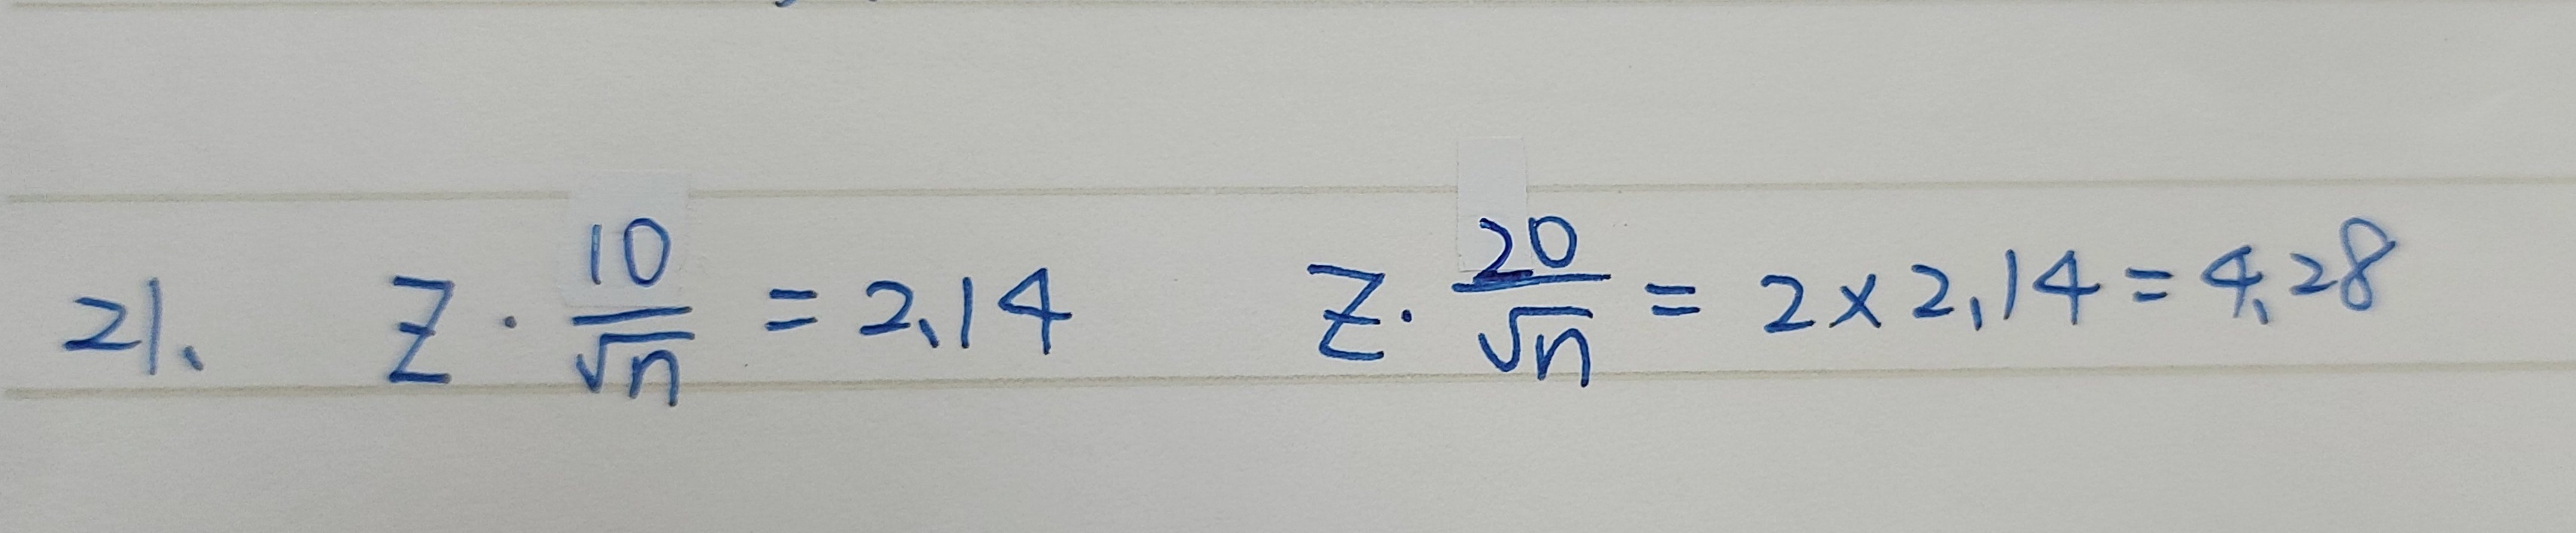 21. Z · 10/√n = 2.14 Z · 20/√n = 2 × 2.14 = 4.28